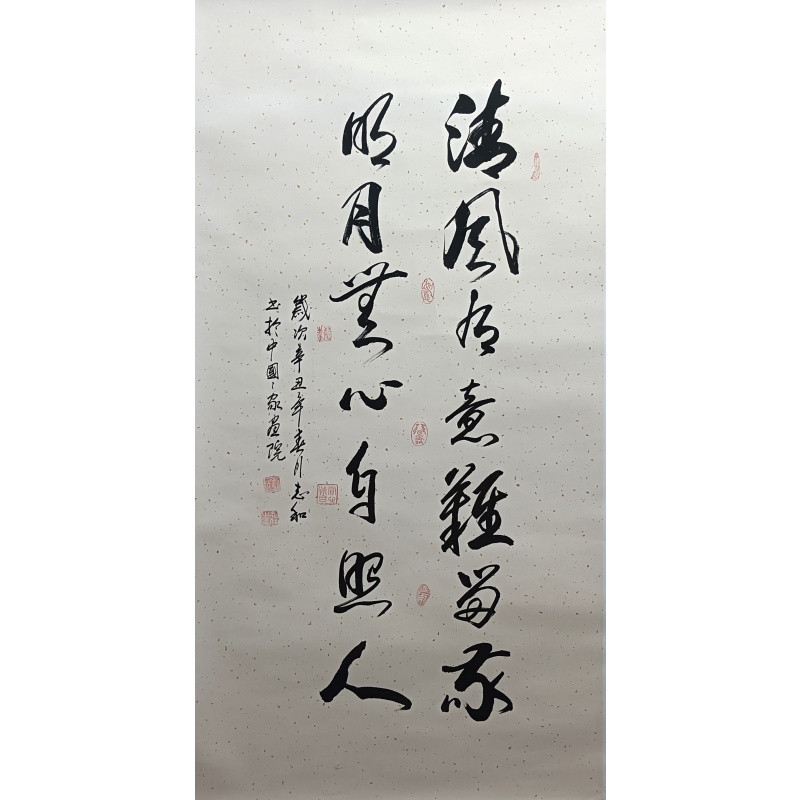 清風有意難留我
明月無心自照人
歲次辛丑年春月志和
书於中國國家画院